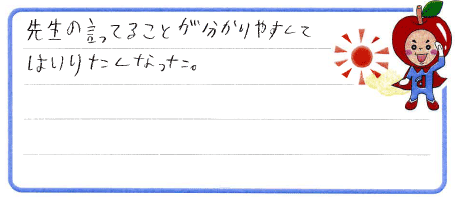 先生の言ってることが分かりやすくて
はいりたくなった。